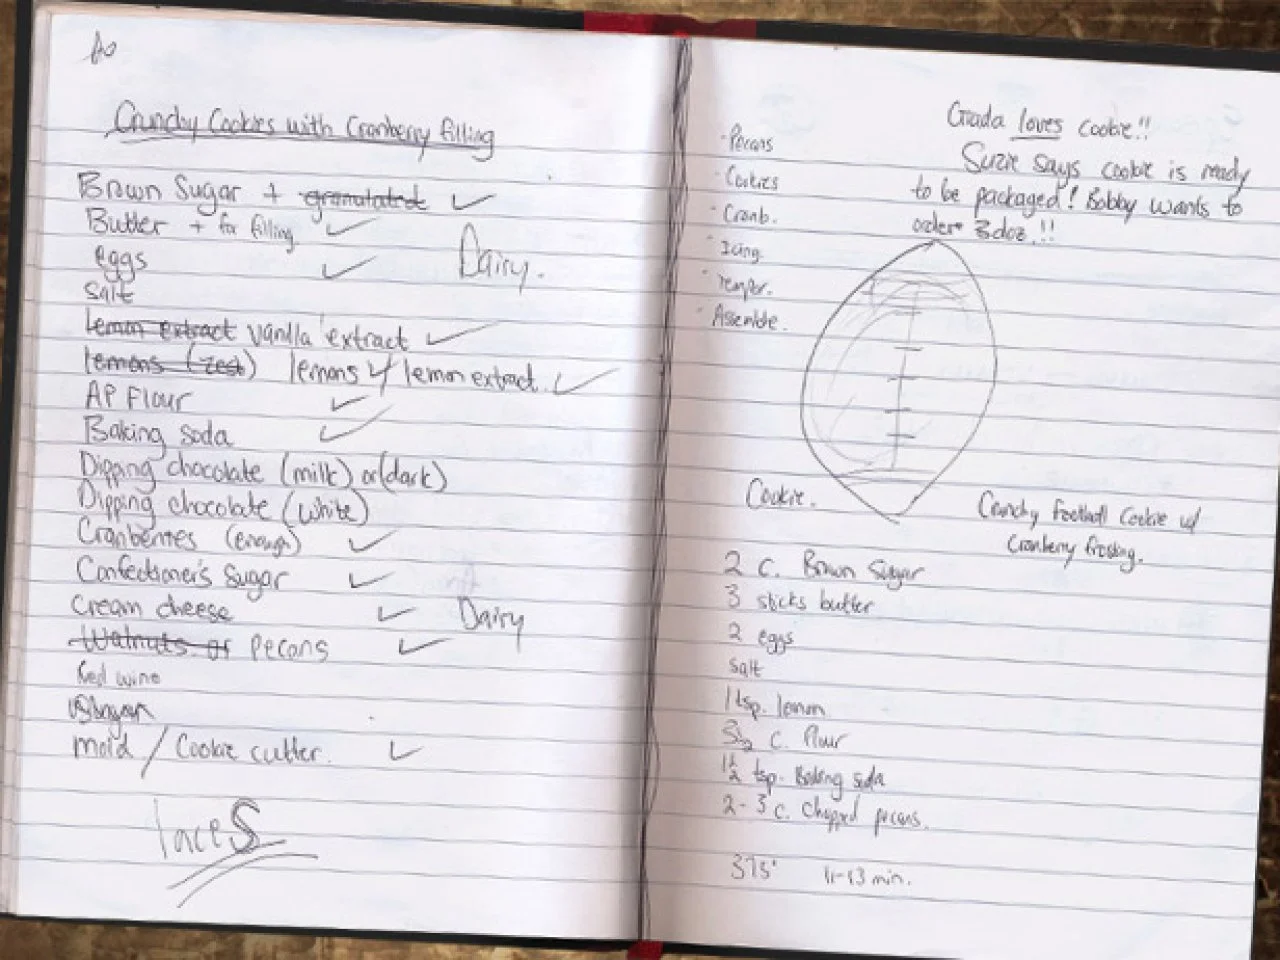 Crunchy Cookies with Cranberry filling
Brown Sugar + granulated
Butter + for filling
eggs
Dairy.
salt
lemon extract vanilla extract
lemons (zest) lemons w/ lemon extract
AP Flour
Baking soda
Dipping chocolate (milk) or (dark)
Dipping chocolate (white)
Cranberries (enough)
Confectioner's Sugar
Cream cheese Dairy
Walnuts or pecans
Red wine
mold / Cookie cutter.
laceS
Giada loves cookie!!
Suzie says cookie is ready
to be packaged! Bobby wants to
order 3 doz.!!
· Pecans
· Cookies
· Cranb.
· Icing
· Temper.
· Assemble.
Cookie.
Crunchy Football Cookie w/
Cranberry frosting.
2 c. Brown Sugar
3 sticks butter
2 eggs
salt
1 tsp. lemon
c. flour
1 1/2 tsp. Baking soda
2-3 c. Chopped pecans.
375° 11-13 min.